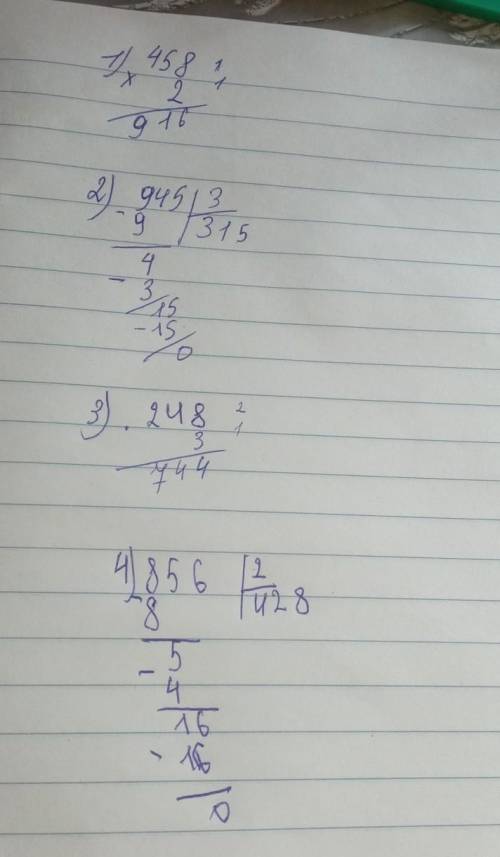 1) 458 1
× 2 1
916
2) 945 3
- 9 315
4
- 3
15
- 15
0
3) . 248 2
3 1
744
4) 856 2
- 8 428
5
- 4
16
- 16
0